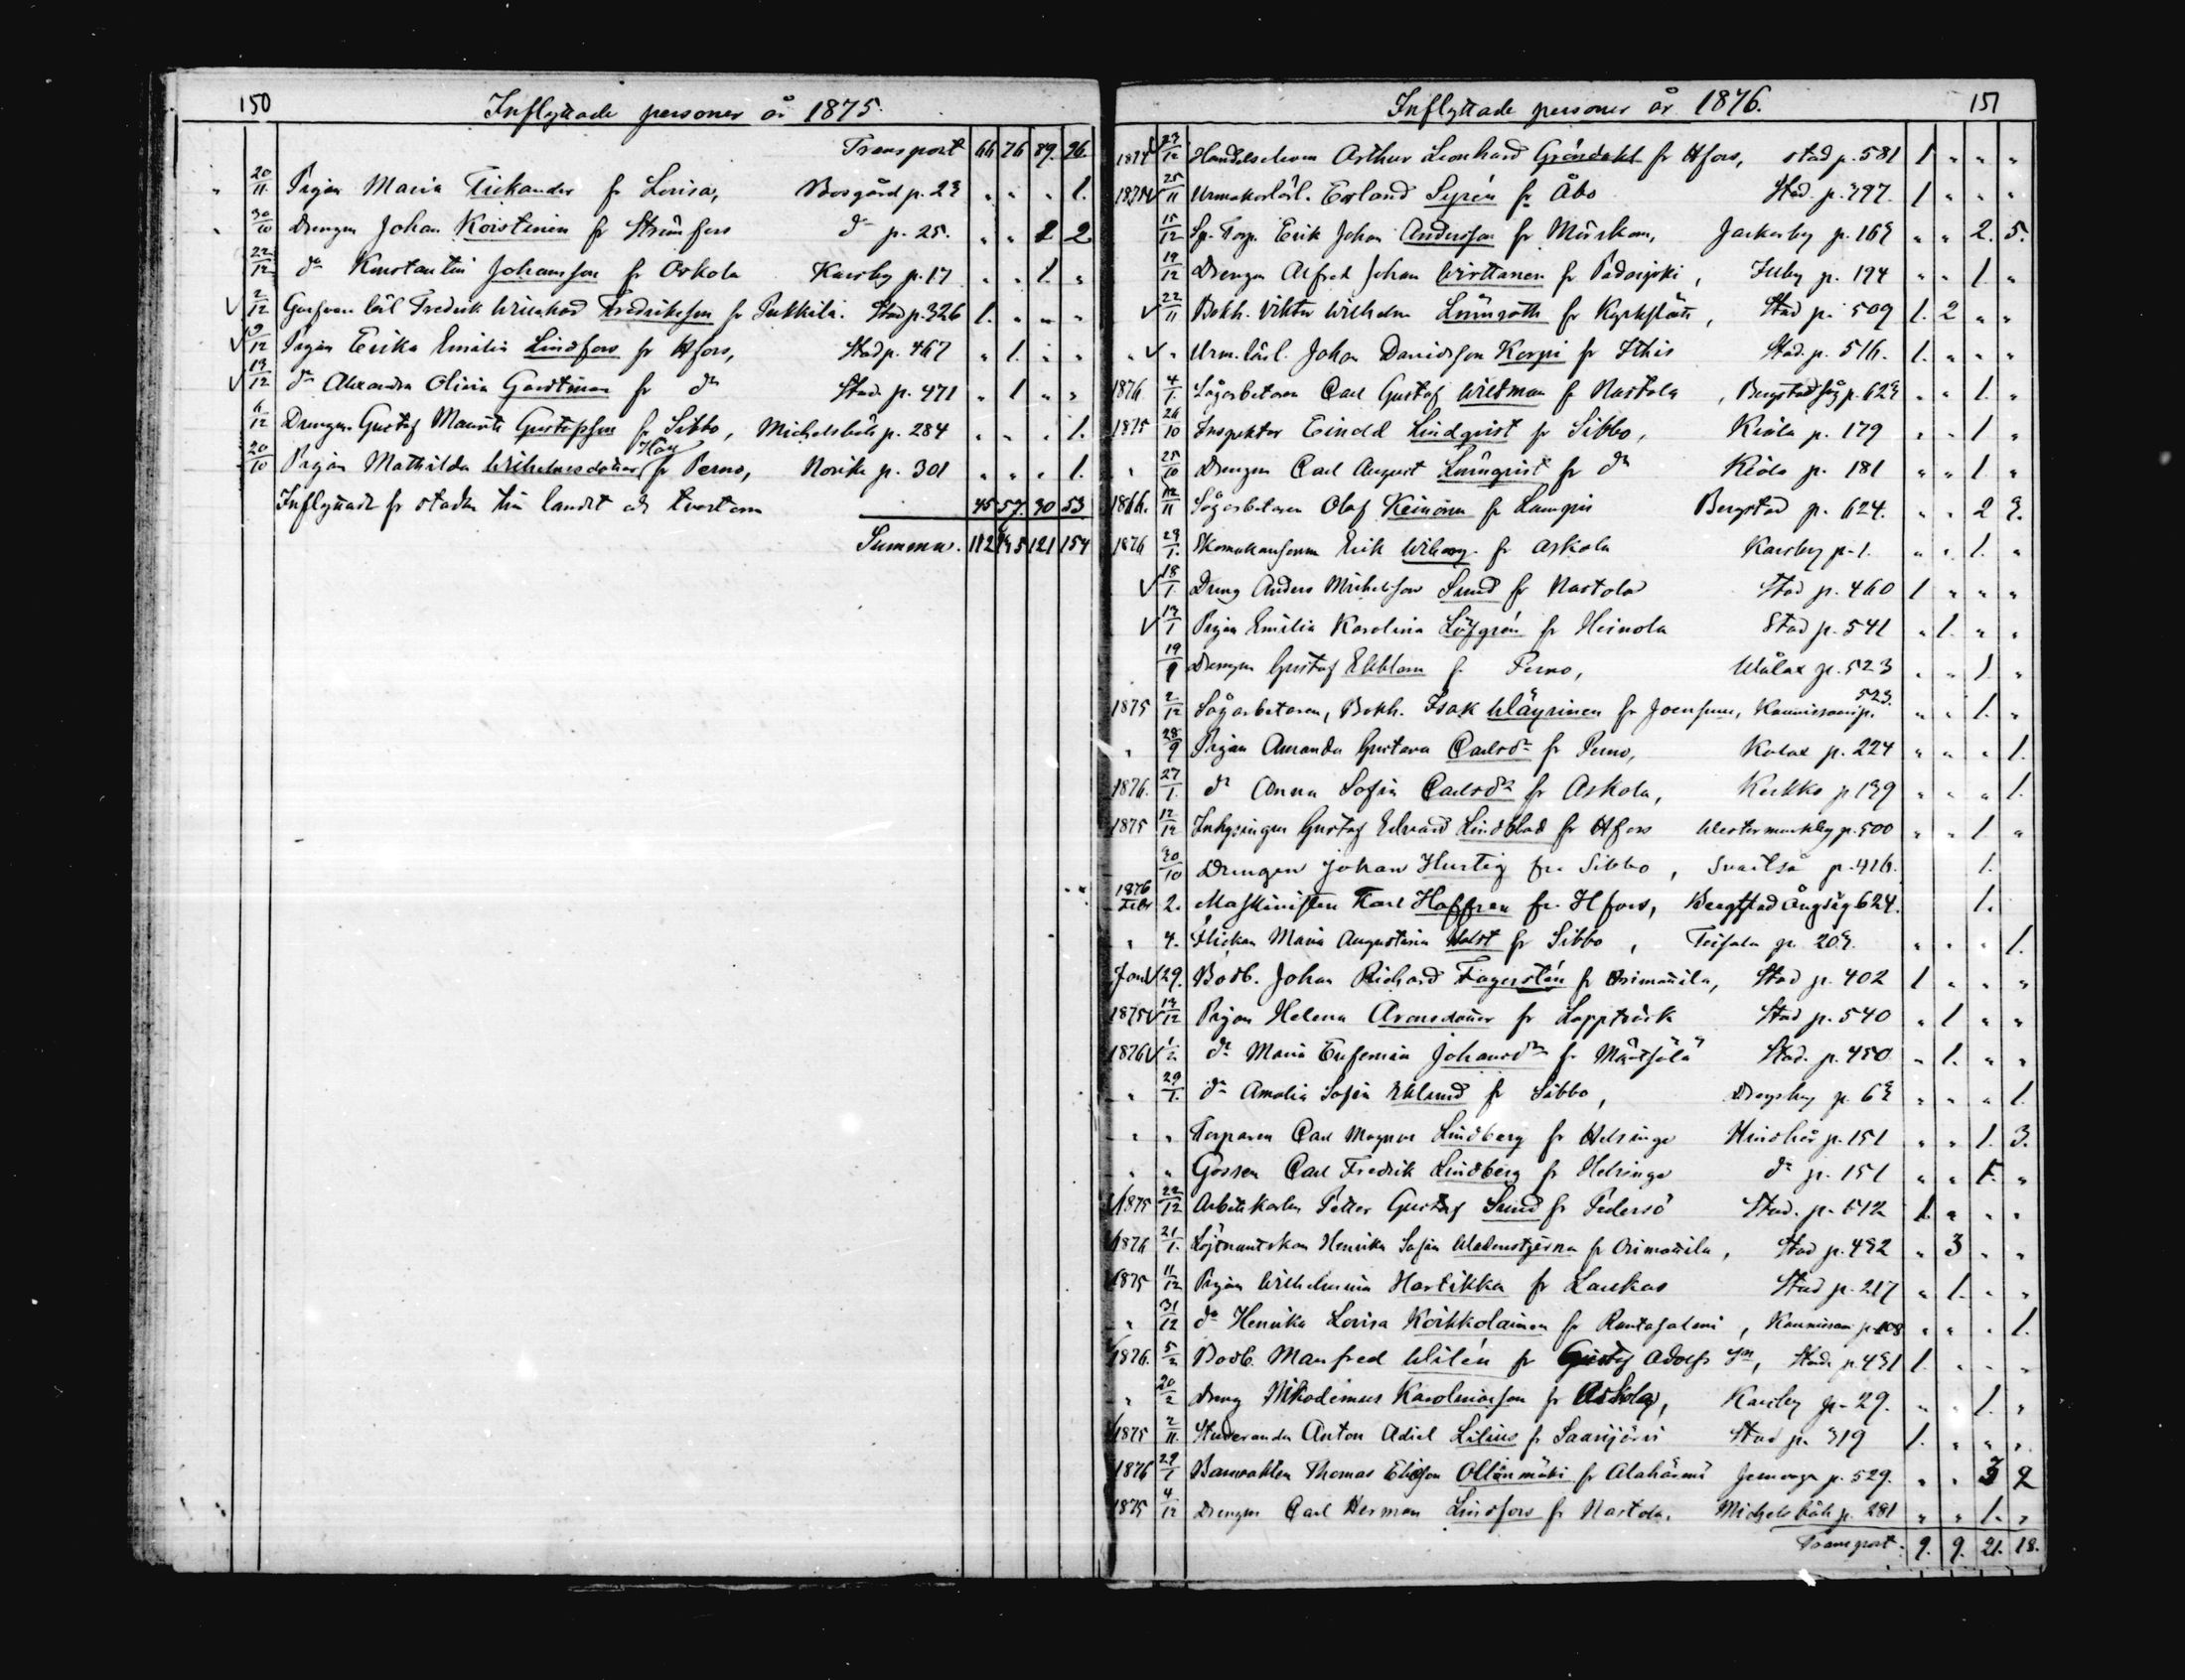 150 Inflyttade personer år 1875.
Transport 66 76 89. 26.
" 20/11. Pigan Maria Tickander fr Lovisa, Bosgård p. 23 " " " 1.
" 30/10 Drengen Johan Koistinen fr Strömfors d:o p. 25. " " 2 2
22/12 d:o Konstantin Johansson fr Askola Karsby p. 17 " " 1. "
√ 2/12 Garfvare lärl Fredrik Willehad Fredriksson fr Pukkila. Stad p. 326 1. " " "
√ 9/12 Pigan Erika Emilia Lindfors fr Hfors, Stad p. 467 " 1. " "
√ 13/12 d:o Alexandra Olivia Gardtman fr d:o Stad p. 471 " 1 " "
6/12 Drengen Gustaf Mauritz Gustafsson fr Sibbo, Michelsböle p. 284 " " " 1.
20/10 Pigan Mathilda Wilhelmsdotter fr Perno, Norike p. 301 " " " 1.
Inflyttade fr staden till landet och tvertom 45 57. 30 53
Summa. 112 135 121 154
Inflyttade personer år 1876. 151
1874 √ 23/12 Arthur Leonhard Gröndahl fr Hfors, stad p. 581 1 " " "
1875 √ 25/11 Urmakarlärl. Erland Syrén fr Åbo Stad. p. 397. 1 " " "
15/12 Sp. Torp. Erik Johan Andersson fr Mörskom, Jackarby p. 163 " " 2. 5.
19/12 Drengen Alfred Johan Wirttanen fr Padasjoki, Illby p. 194 " " 1. "
√ 22/11 Bokh. Viktor Wilhelm Lönnroth fr Kyrkslätt, Stad p. 509 1. 2 " "
" √ " Urm. lärl. Johan Davidsson Korpi fr Ithis Stad. p. 516. 1. " " "
1876 4/1. Sågarbetaren Carl Gustaf Widman fr Nastola, Bergstad såg p. 623 " " 1. "
1875 26/10 Inspektor Eindd Lindqvist fr Sibbo, Kiala p. 179 " " 1 "
" 25/10 Drengen Carl August Lönnqvist fr d:o Kiala p. 181 " " 1. "
1866. 12/11 Sågarbetaren Olaf Keinonen fr Lampis Bergstad p. 624. " " 2 3.
1876 29/1. Erik Wiberg fr Askola Karsby p. 1. " " 1. "
√ 18/1. Dreng Anders Michelsson Sund fr Nastola Stad p. 460 1 " " "
√ 13/1 Pigan Emilia Karolina Löfgrén fr Heinola Stad p. 541 " 1. " "
19/9 Drengen Gustaf Ekblom fr Perno, Wålax p. 523 " " 1. "
1875 2/12 Sågarbetaren, Bokh. Isak Wäyrinen fr Joensuu, p. 523. " " 1. "
" 28/9 Pigan Amanda Gustava Carlsd:r fr Perno, Kalax p. 224 " " " 1.
1876. 27/1. d:o Anna Sofia Carlsd:r fr Askola, Kerkko p 139 " " " 1.
1875 12/12 Inhysingen Gustaf Edvard Lindblad fr Hfors Westermunkby p. 500 " " 1 "
30/10 Drengen Johan Hurtig fr. Sibbo, Svartså p. 416. 1.
1876 Febr 2. Maskinisten Karl Haffren fr. Hfors, Bergstad Ångsåg 624. 1.
" 4. Flickan Maria Augustina Holst fr Sibbo, Teisala p. 203. " " " 1.
Jan √ 29. Bodb. Johan Richard Fagerstén fr Orimattila, Stad p. 402 1 " " "
1875 √ 13/12 Pigan Helena Aronsdotter fr Lappträsk Stad p. 540 " 1 " "
1876 √ 1/2. d:o Maria Eufemia Johansd:r fr Mäntsälä Stad. p. 450 " 1. " "
" 29/1. d:o Amalia Sofia Eklund fr Sibbo, Drägsby p. 63 " " " 1.
" " Torparen Carl Magnus Lindberg fr Helsinge Hindhår p. 151 " " 1. 3.
" " Gossen Carl Fredrik Lindberg fr Helsinge d:o p. 151 " " 1. "
√1875 22/12 Arbetskarlen Petter Gustaf Sund fr Pedersö Stad. p. 542 1. " " "
√1876 21/1. Löjtnantskan Henrika Sofia Wadenstjerna fr Orimattila, Stad p. 492 " 3 " "
√1875 11/12 Pigan Wilhelmina Hartikka fr Laukas Stad p. 217 " 1. " "
" 31/12 d:o Henrika Lovisa Koikkolainen fr Rantasalmi, p. 108 " " " 1.
√1876. 5/2 Bodb. Manfred Wilén fr Gustaf Adolfs sn, Stad. p. 491 1. " " "
" 20/2 Dreng Nikodemus Karolinasson fr Askola, Karsby p. 29. " " 1. "
√1875 2/11. Studeranden Anton Adiel Lilius fr Saarijärvi Stad p. 319 1. " " "
1876 29/1 Banvakten Thomas Eliasson Ollinmäki fr Alahärmä p. 529. " " 3 2
1875 4/12 Drengen Carl Herman Lindfors fr Nastola. Michelsböle p. 281 " " 1. "
Transport. 9. 9. 21. 18.